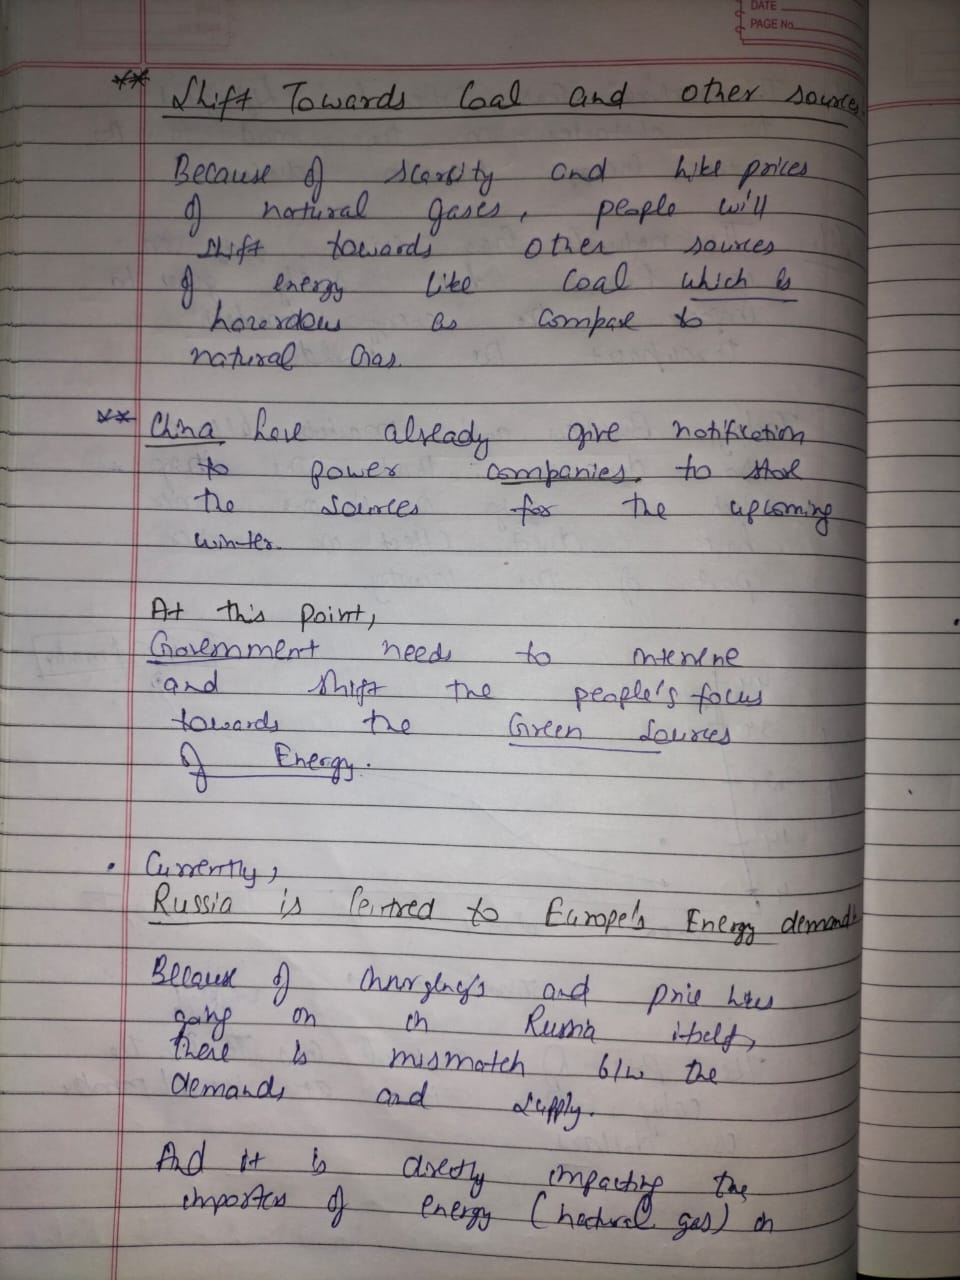 DATE
PAGE No.
** Shift Towards Coal and other sources
Because of scarsity and hike prices
of natural gases, people will
shift towards other sources
of energy like Coal which is
hazerdous as compare to
natural Gas.
** China have already give notification
to power companies. to store
the sources for the upcoming
winter.
At this point,
Government needs to intervene
and shift the people's focus
towards the Green Sources
of Energy.
• Currently,
Russia is centred to Europe's Energy demand.
Because of and price hikes
going on in Russia itself,
there is mismatch b/w the
demands and supply.
And it is directly impacting the
importers of energy (natural gas) in